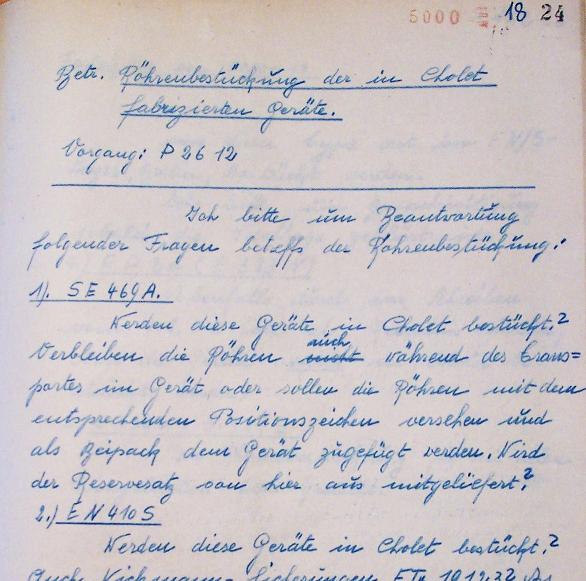 5000 18 24
Betr. Röhrenbestückung der in Cholet
fabrizierten Geräte.
Vorgang: P 26 12
Ich bitte um Beantwortung
folgender Fragen betreffs der Röhrenbestückung:
1). SE 469A.
Werden diese Geräte in Cholet bestückt?
Verbleiben die Röhren auch nicht während des Trans=
portes im Gerät oder sollen die Röhren mit dem
entsprechenden Positionszeichen versehen und
als Beipack dem Gerät zugefügt werden. Wird
der Reservesatz von hier aus mitgeliefert?
2.) EN 410 S
Werden diese Geräte in Cholet bestückt?
Auch